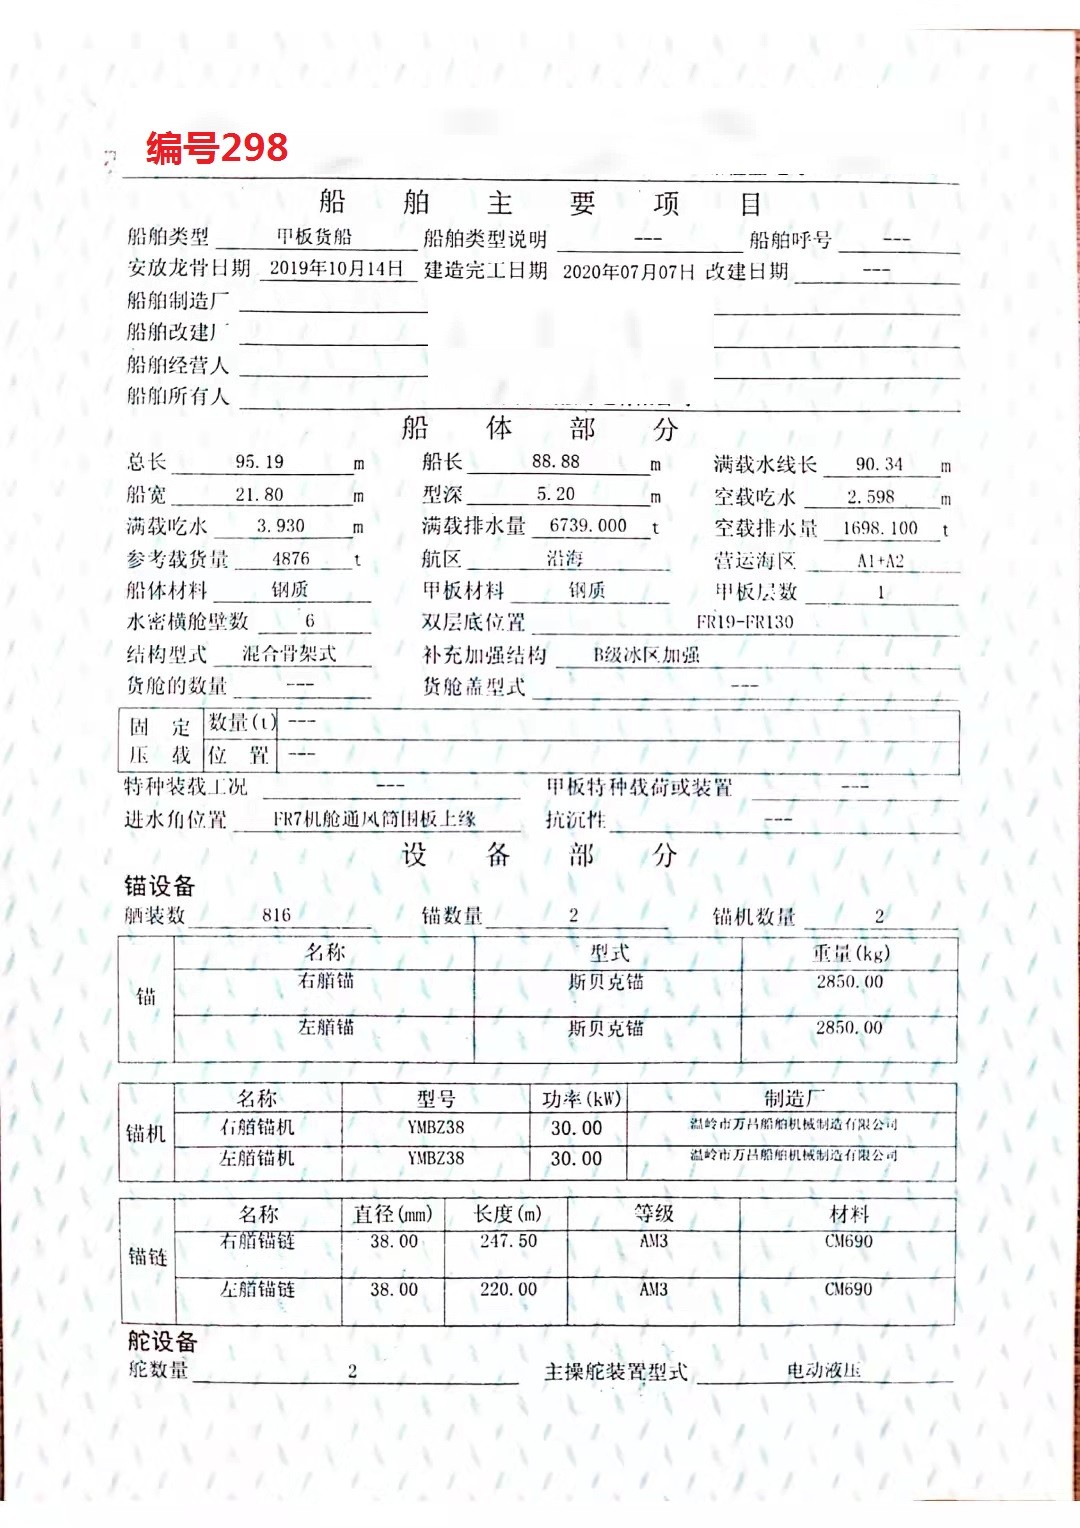 编号298
船舶主要项目
船舶类型 甲板货船 船舶类型说明 --- 船舶呼号 ---
安放龙骨日期 2019年10月14日 建造完工日期 2020年07月07日 改建日期 ---
船舶制造厂
船舶改建厂
船舶经营人
船舶所有人
船体部分
总长 95.19 m 船长 88.88 m 满载水线长 90.34 m
船宽 21.80 m 型深 5.20 m 空载吃水 2.598 m
满载吃水 3.930 m 满载排水量 6739.000 t 空载排水量 1698.100 t
参考载货量 4876 t 航区 沿海 营运海区 A1+A2
船体材料 钢质 甲板材料 钢质 甲板层数 1
水密横舱壁数 6 双层底位置 FR19-FR130
结构型式 混合骨架式 补充加强结构 B级冰区加强
货舱的数量 --- 货舱盖型式 ---
固定压载 数量(t) ---
位置 ---
特种装载工况 --- 甲板特种载荷或装置 ---
进水角位置 FR7机舱通风筒围板上缘 抗沉性 ---
设备部分
锚设备
舾装数 816 锚数量 2 锚机数量 2
锚 名称 型式 重量(kg)
右艏锚 斯贝克锚 2850.00
左艏锚 斯贝克锚 2850.00
锚机 名称 型号 功率(kW) 制造厂
右艏锚机 YMBZ38 30.00 温岭市万昌船舶机械制造有限公司
左艏锚机 YMBZ38 30.00 温岭市万昌船舶机械制造有限公司
锚链 名称 直径(mm) 长度(m) 等级 材料
右艏锚链 38.00 247.50 AM3 CM690
左艏锚链 38.00 220.00 AM3 CM690
舵设备
舵数量 2 主操舵装置型式 电动液压